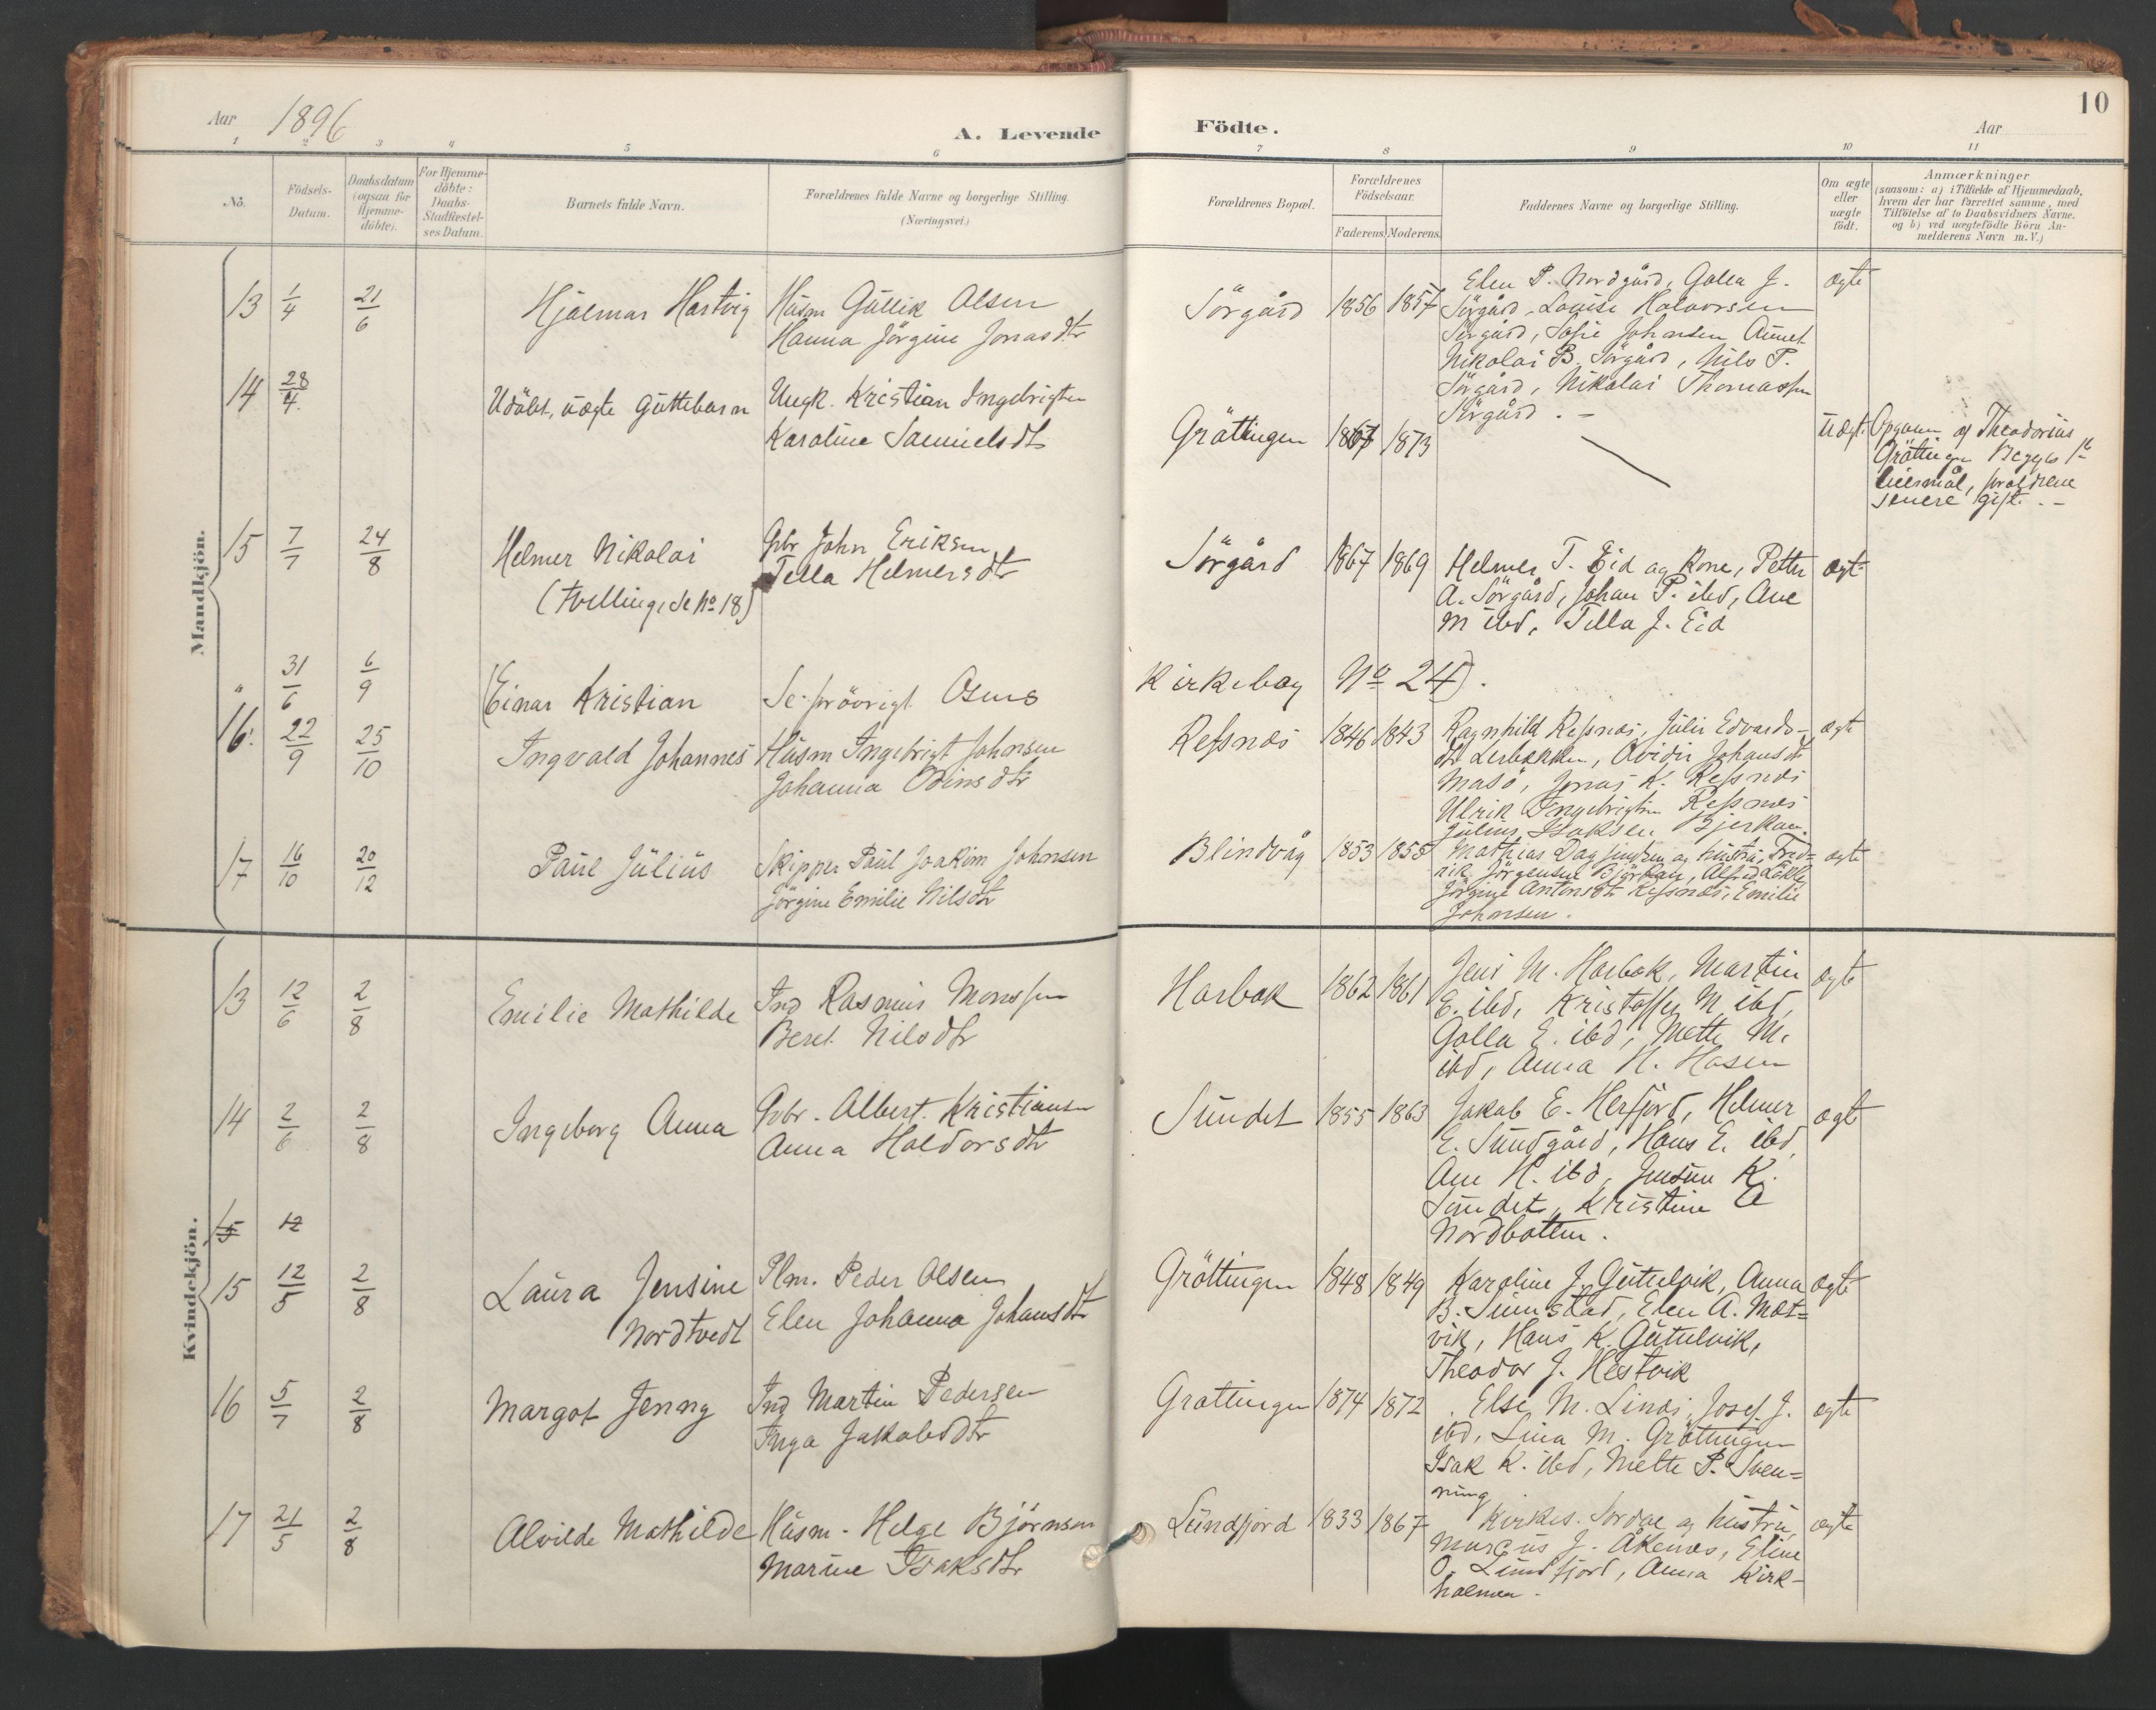 10
Aar 1896
A. Levende Födte.
Aar
1 2 3 4 5 6 7 8 9 10 11
Nö.
Födsels-Datum.
Daabsdatum (ogsaa för Hjemme-döbte).
For Hjemme-döbte: Daabs-Stadfæstel-ses Datum.
Barnets fulde Navn.
Forældrenes fulde Navne og borgerlige Stilling. (Næringsvei.)
Forældrenes Bopæl.
Forældrenes Födselsaar.
Faderens. Moderens.
Faddernes Navne og borgerlige Stilling.
Om ægte eller uægte födt.
Anmærkninger
(saasom: a) i Tilfælde af Hjemmedaab,
hvem der har forrettet samme, med
Tilföielse af to Daabsvidners Navne.
og b) ved uægtefödte Börn An-
melderens Navn m. V.)
Mandkjön.
13 1/4 21/6 Hjalmar Hartvig
Husm Gullik Olsen
Hanna Jörgine Jonasdtr
Sörgård 1856 1857
Elen P. Nordgård, Golla J.
Sörgård, Louise Halvorsen
Sörgård, Sofie Johnsen Aunet
Nikolai B. Sörgård, Nils P.
Sörgård, Nikolai Thomassen
Sörgård. –
ægte
14 28/4 Udöbt, uægte Guttebarn
Ungk. Kristian Ingebrigtsen
Karoline Samuelsdtr
Gröttingen 1867 1873
uægt.
Opgaven af Theodorius
Gröttingen Begges 1ste
leiermål, forældrene
senere gift. –
15 7/7 24/8 Helmer Nikolai
(Tvilling, se No 18)
Gbr John Eriksen
Tella Helmersdtr
Sörgård 1867 1869
Helmer T. Eid og Kone, Petter
A. Sörgård, Johan P. ibd, Ane
M ibd, Tella J. Eid
ægt.
" 31/6 6/9 (Einar Kristian
Se forövrigt Osens Kirkebog No 24).
16. 22/9 25/10 Ingvald Johannes
Husm Ingebrigt Johnsen
Johanna Odinsdtr
Refsnes 1846 1843
Ragnhild Refsnes, Julie Edvards-
dtr Lerbakken, Ovidie Johansdtr
Masö, Jonas K. Refsnes
Ulrik Ingebrigtsen Refsnes
Julius Isaksen Bjerkan.
ægte
17 16/10 20/12 Paul Julius
Skipper Paul Joakim Johnsen
Jörgine Emilie Nilsdtr
Blindvåg 1853 1858
Mathias Dagfindsen og hustru, Fred-
rik Jörgensen Björkan,
Jörgine Antonsdtr Refsnes, Emilie
Johnsen.
ægte
Kvindekjön.
13 12/6 2/8 Emilie Mathilde
Ind Rasmus Monssen
Beret Nilsdtr
Harbak 1862 1861
Jens M. Harbak, Martin
E. ibd, Kristoffer M ibd,
Golla E. ibd, Mette M.
ibd, Anna H. Hosen
ægte
14 2/6 2/8 Ingeborg Anna
Gbr. Albert Kristiansen
Anna Haldorsdtr
Sundet 1855 1863
Jakob E. Herfjord, Helmer
E. Sundgård, Hans E. ibd,
Ane H. ibd, Jensine K.
Sundet, Kristine A
Nordbotten.
ægte
15 12
15 12/5 2/8 Laura Jensine
Nordtvedt
Plm. Peder Olsen
Elen Johanna Johansdtr
Gröttingen 1848 1849
Karoline J. Gutulvik, Anna
B. Sumstad, Elen A. Mot-
vik, Hans K. Gutulvik,
Theodor J. Hestvik
ægte
16 5/7 2/8 Margot Jenny
Ind Martin Pedersen
Inga Jakobsdtr
Grøttingen 1874 1872
Else M. Linæs, Josef J.
ibd, Lina M. Gröttingen
Isak K. ibd, Mette P. Sven-
ning
ægte
17 21/5 2/8 Alvilde Mathilde
Husm. Helge Björnsen
Marine Isaksdtr
Sundfjord 1833 1867
Kirkes. Sordal og hustru,
Marcus J. Åkenes, Eline
O. Sundfjord, Anna Kirk-
holmen.
ægte